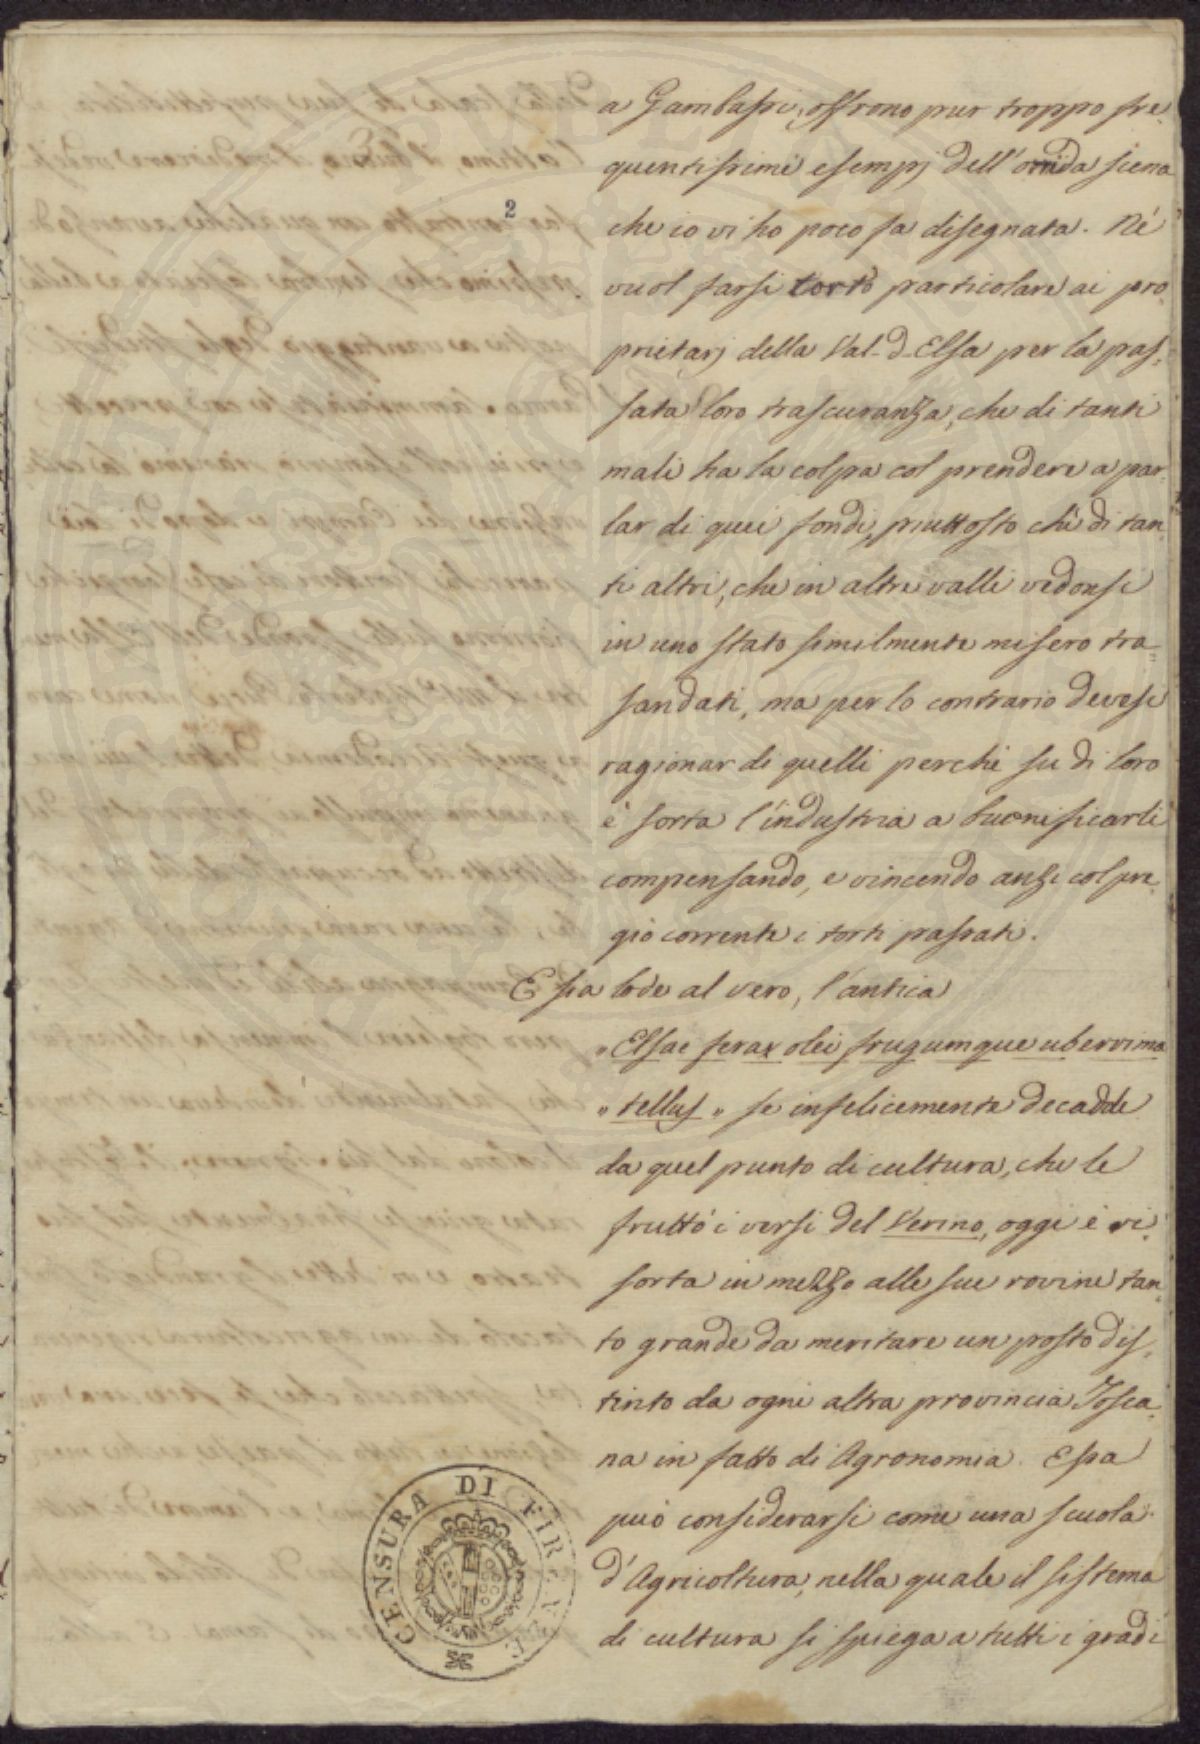 2
a Gambassi, offrono pur troppo fre-
quentissimi esempj dell'orrida scena
che io vi ho poco fa disegnata. Né
vuol farsi torto particolare ai pro-
prietarj della Val-d-Elsa per la pas-
sata loro trascuranza, che di tanti
mali ha la colpa col prendere a par-
lar di quei fondi, piuttosto che di tan-
ti altri, che in altre valli vedonsi
in uno stato similmente misero tra-
sandati, ma per lo contrario devesi
ragionar di quelli perchè su di loro
è sorta l'industria a buonificarli
compensando, e vincendo anzi col pre-
gio corrente i torti passati.
E sia lode al vero, l'antica
"Elsae ferax olei frugumque uberrima
"tellus" se infelicemente decadde
da quel punto di cultura, che le
fruttò i versi del Verino, oggi è ri-
sorta in mezzo alle sue rovine tan-
to grande da meritare un posto dis-
tinto da ogni altra provincia Tosca-
na in fatto di Agronomia. Essa
può considerarsi come una scuola
d'Agricoltura, nella quale il sistema
di cultura si spiega a tutti i gradi
CENSURA DI FIRENZE